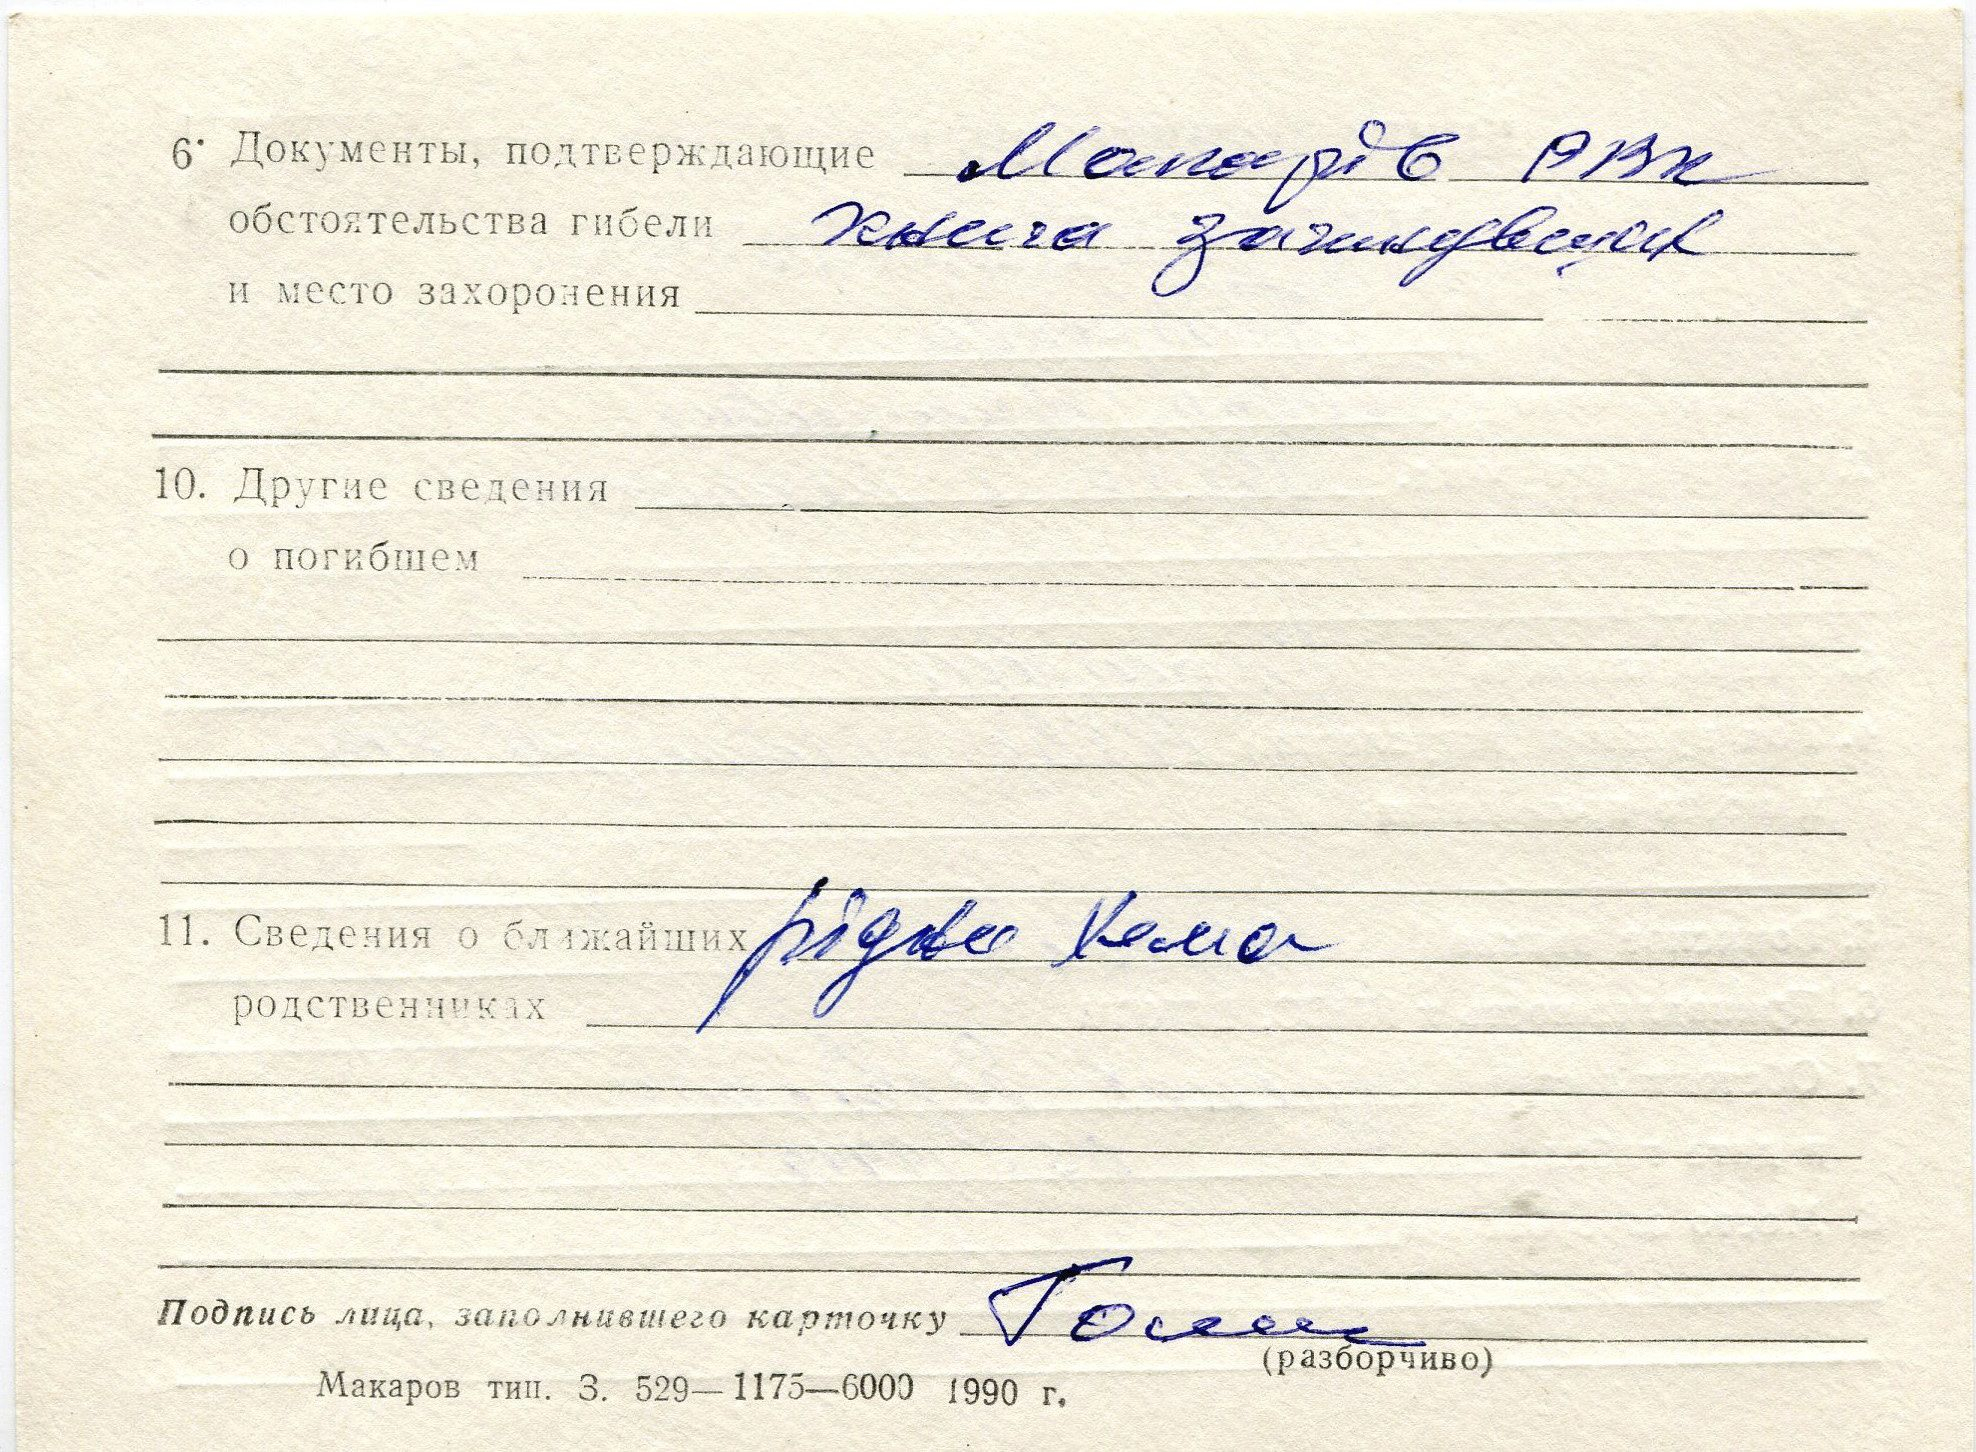 6. Документы, подтверждающие Макарів РВК
обстоятельства гибели книга
и место захоронения
10. Другие сведения
о погибшем
11. Сведения о ближайших рідні нема
родственниках
Подпись лица, заполнившего карточку
(разборчиво)
Макаров тип. З. 529—1175—6000 1990 г.